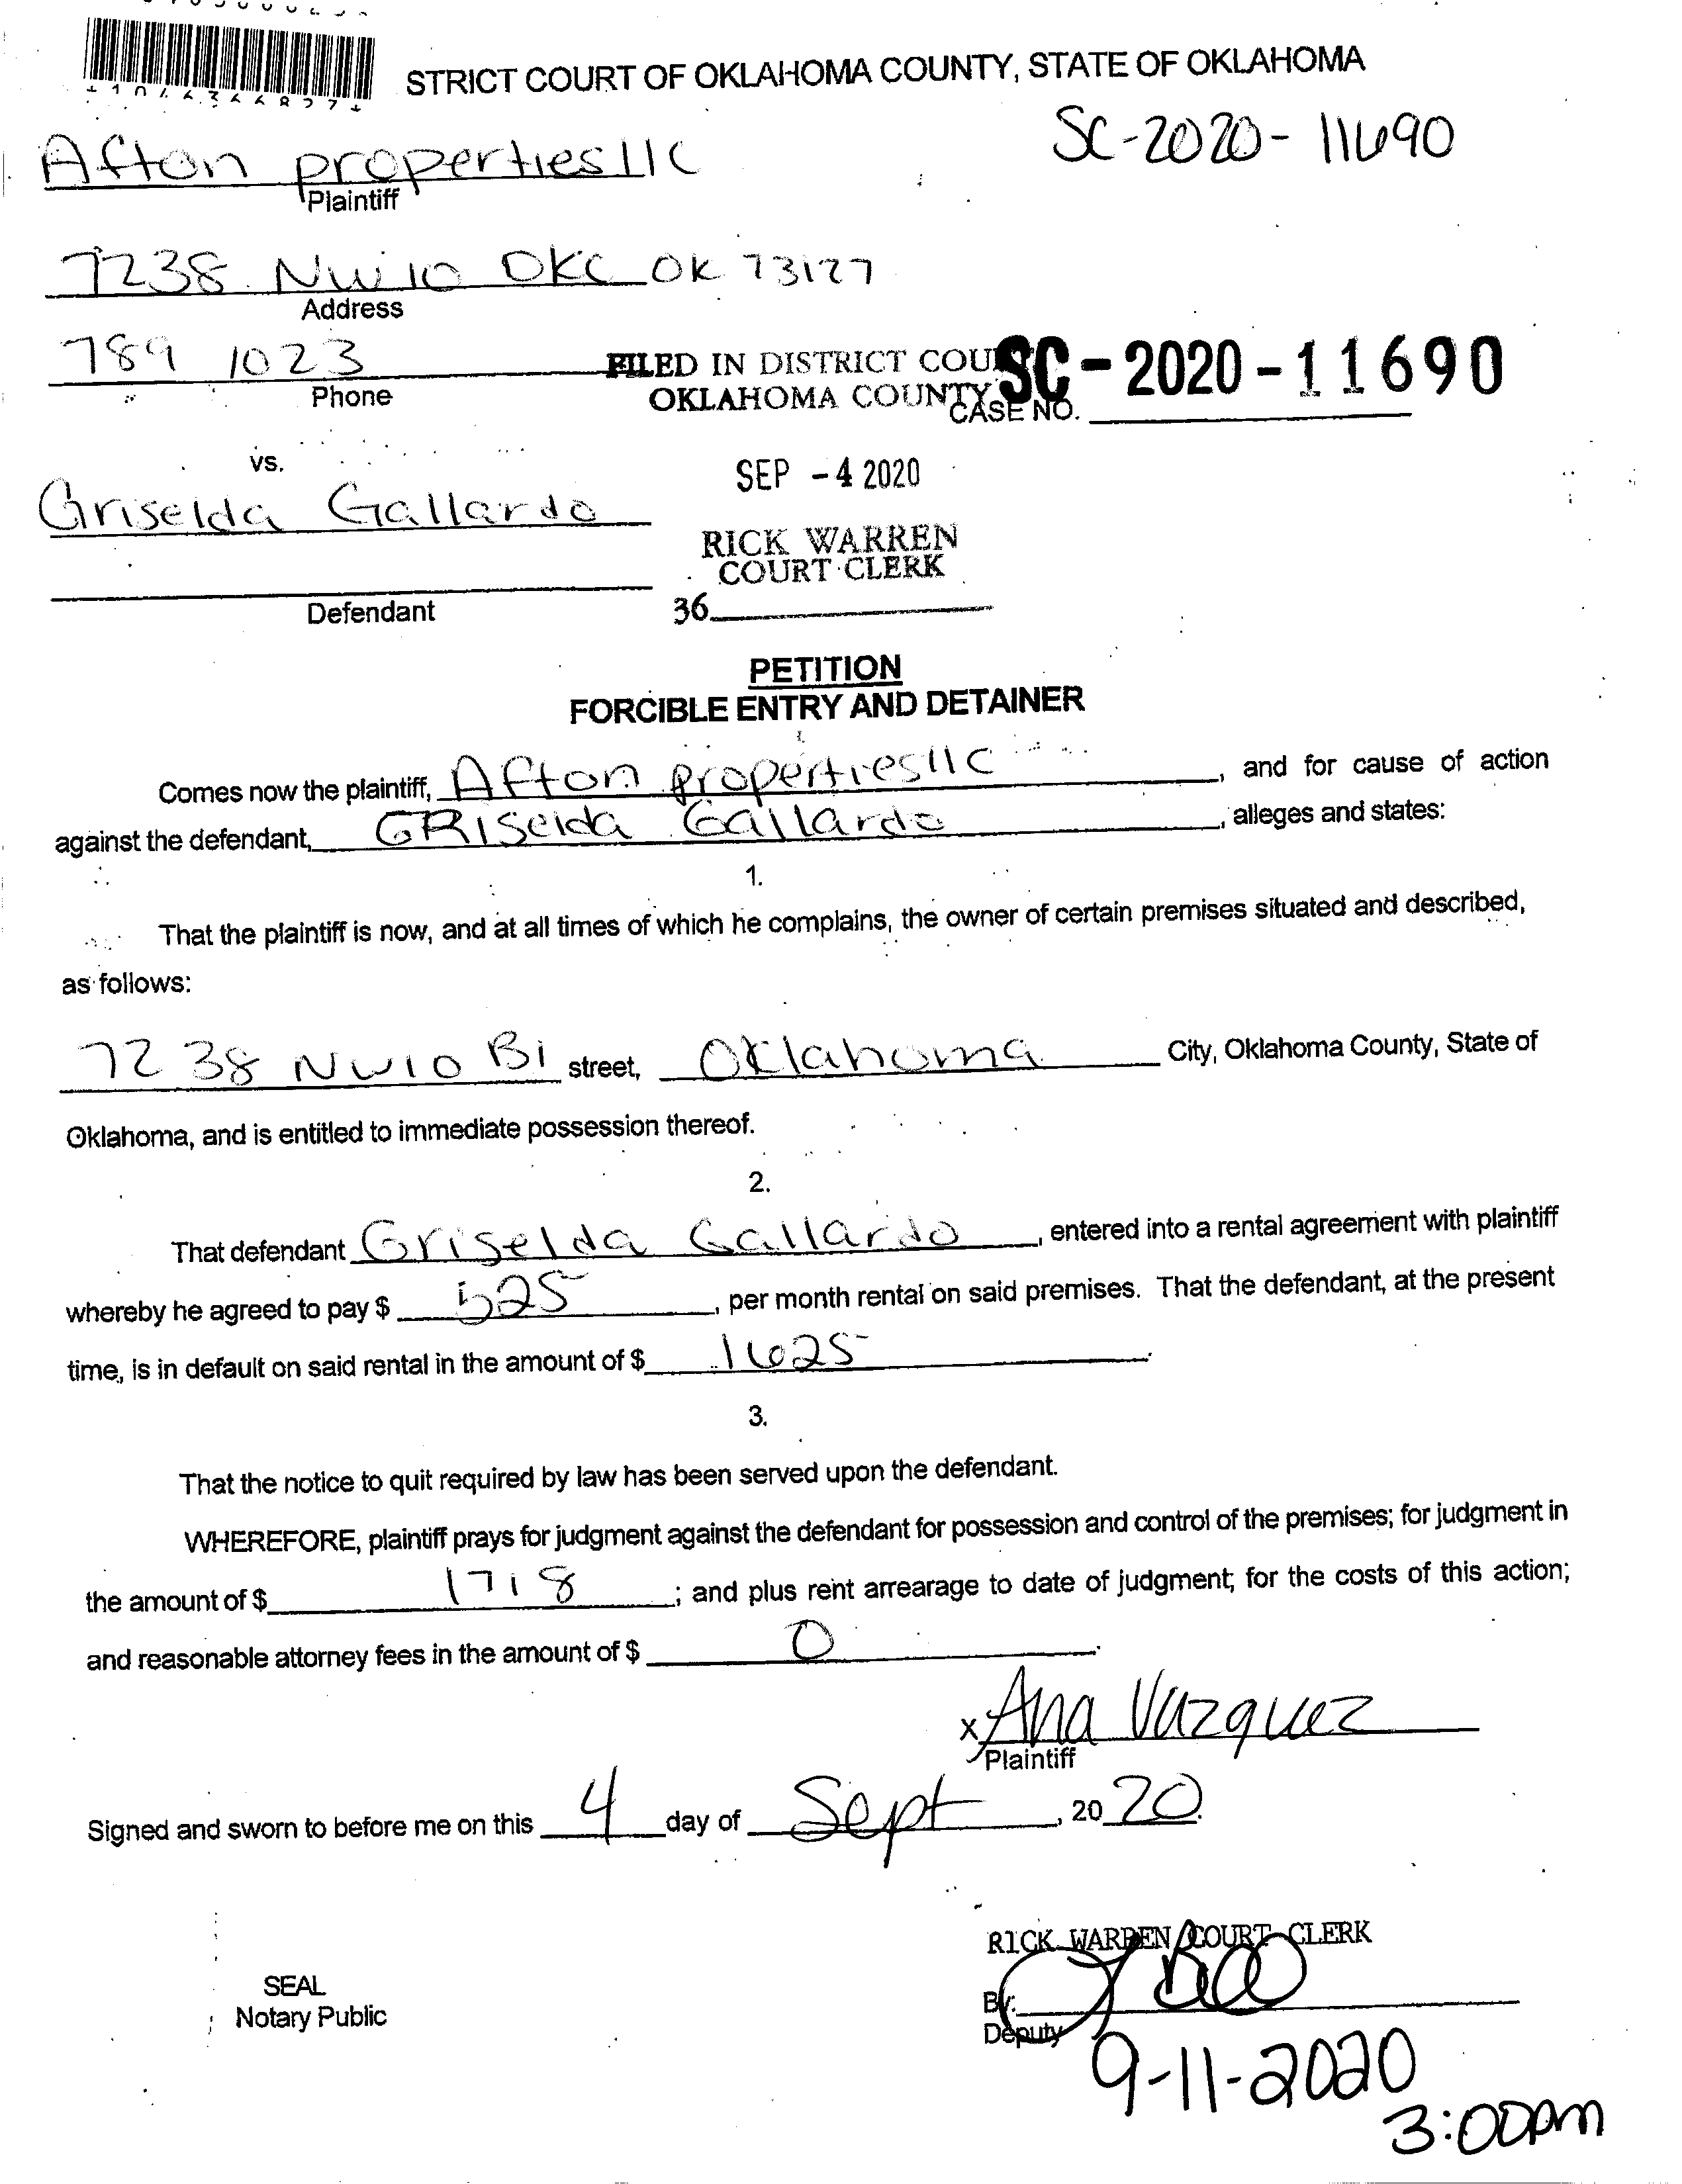 STRICT COURT OF OKLAHOMA COUNTY, STATE OF OKLAHOMA
SC-2020-11690
Afton properties llc
Plaintiff
7238 NW 10 OKC OK 73127
Address
789 1023
Phone
FILED IN DISTRICT COU
OKLAHOMA COUNTY
SC-2020-11690
CASE NO.
vs.
SEP -4 2020
Griselda Gallardo
RICK WARREN
COURT CLERK
Defendant
36
PETITION
FORCIBLE ENTRY AND DETAINER
Comes now the plaintiff, Afton properties llc, and for cause of action
against the defendant, GRiselda Gallardo, alleges and states:
1.
That the plaintiff is now, and at all times of which he complains, the owner of certain premises situated and described,
as follows:
7238 NW10 B1 street, Oklahoma City, Oklahoma County, State of
Oklahoma, and is entitled to immediate possession thereof.
2.
That defendant Griselda Gallardo, entered into a rental agreement with plaintiff
whereby he agreed to pay $ 525, per month rental on said premises. That the defendant, at the present
time, is in default on said rental in the amount of $ 1625.
3.
That the notice to quit required by law has been served upon the defendant.
WHEREFORE, plaintiff prays for judgment against the defendant for possession and control of the premises; for judgment in
the amount of $ 1718; and plus rent arrearage to date of judgment; for the costs of this action;
and reasonable attorney fees in the amount of $ 0.
x Ana Vazquez
Plaintiff
Signed and sworn to before me on this 4 day of Sept, 2020.
RICK WARREN COURT CLERK
SEAL
Notary Public
By:
Deputy
9-11-2020
3:00pm